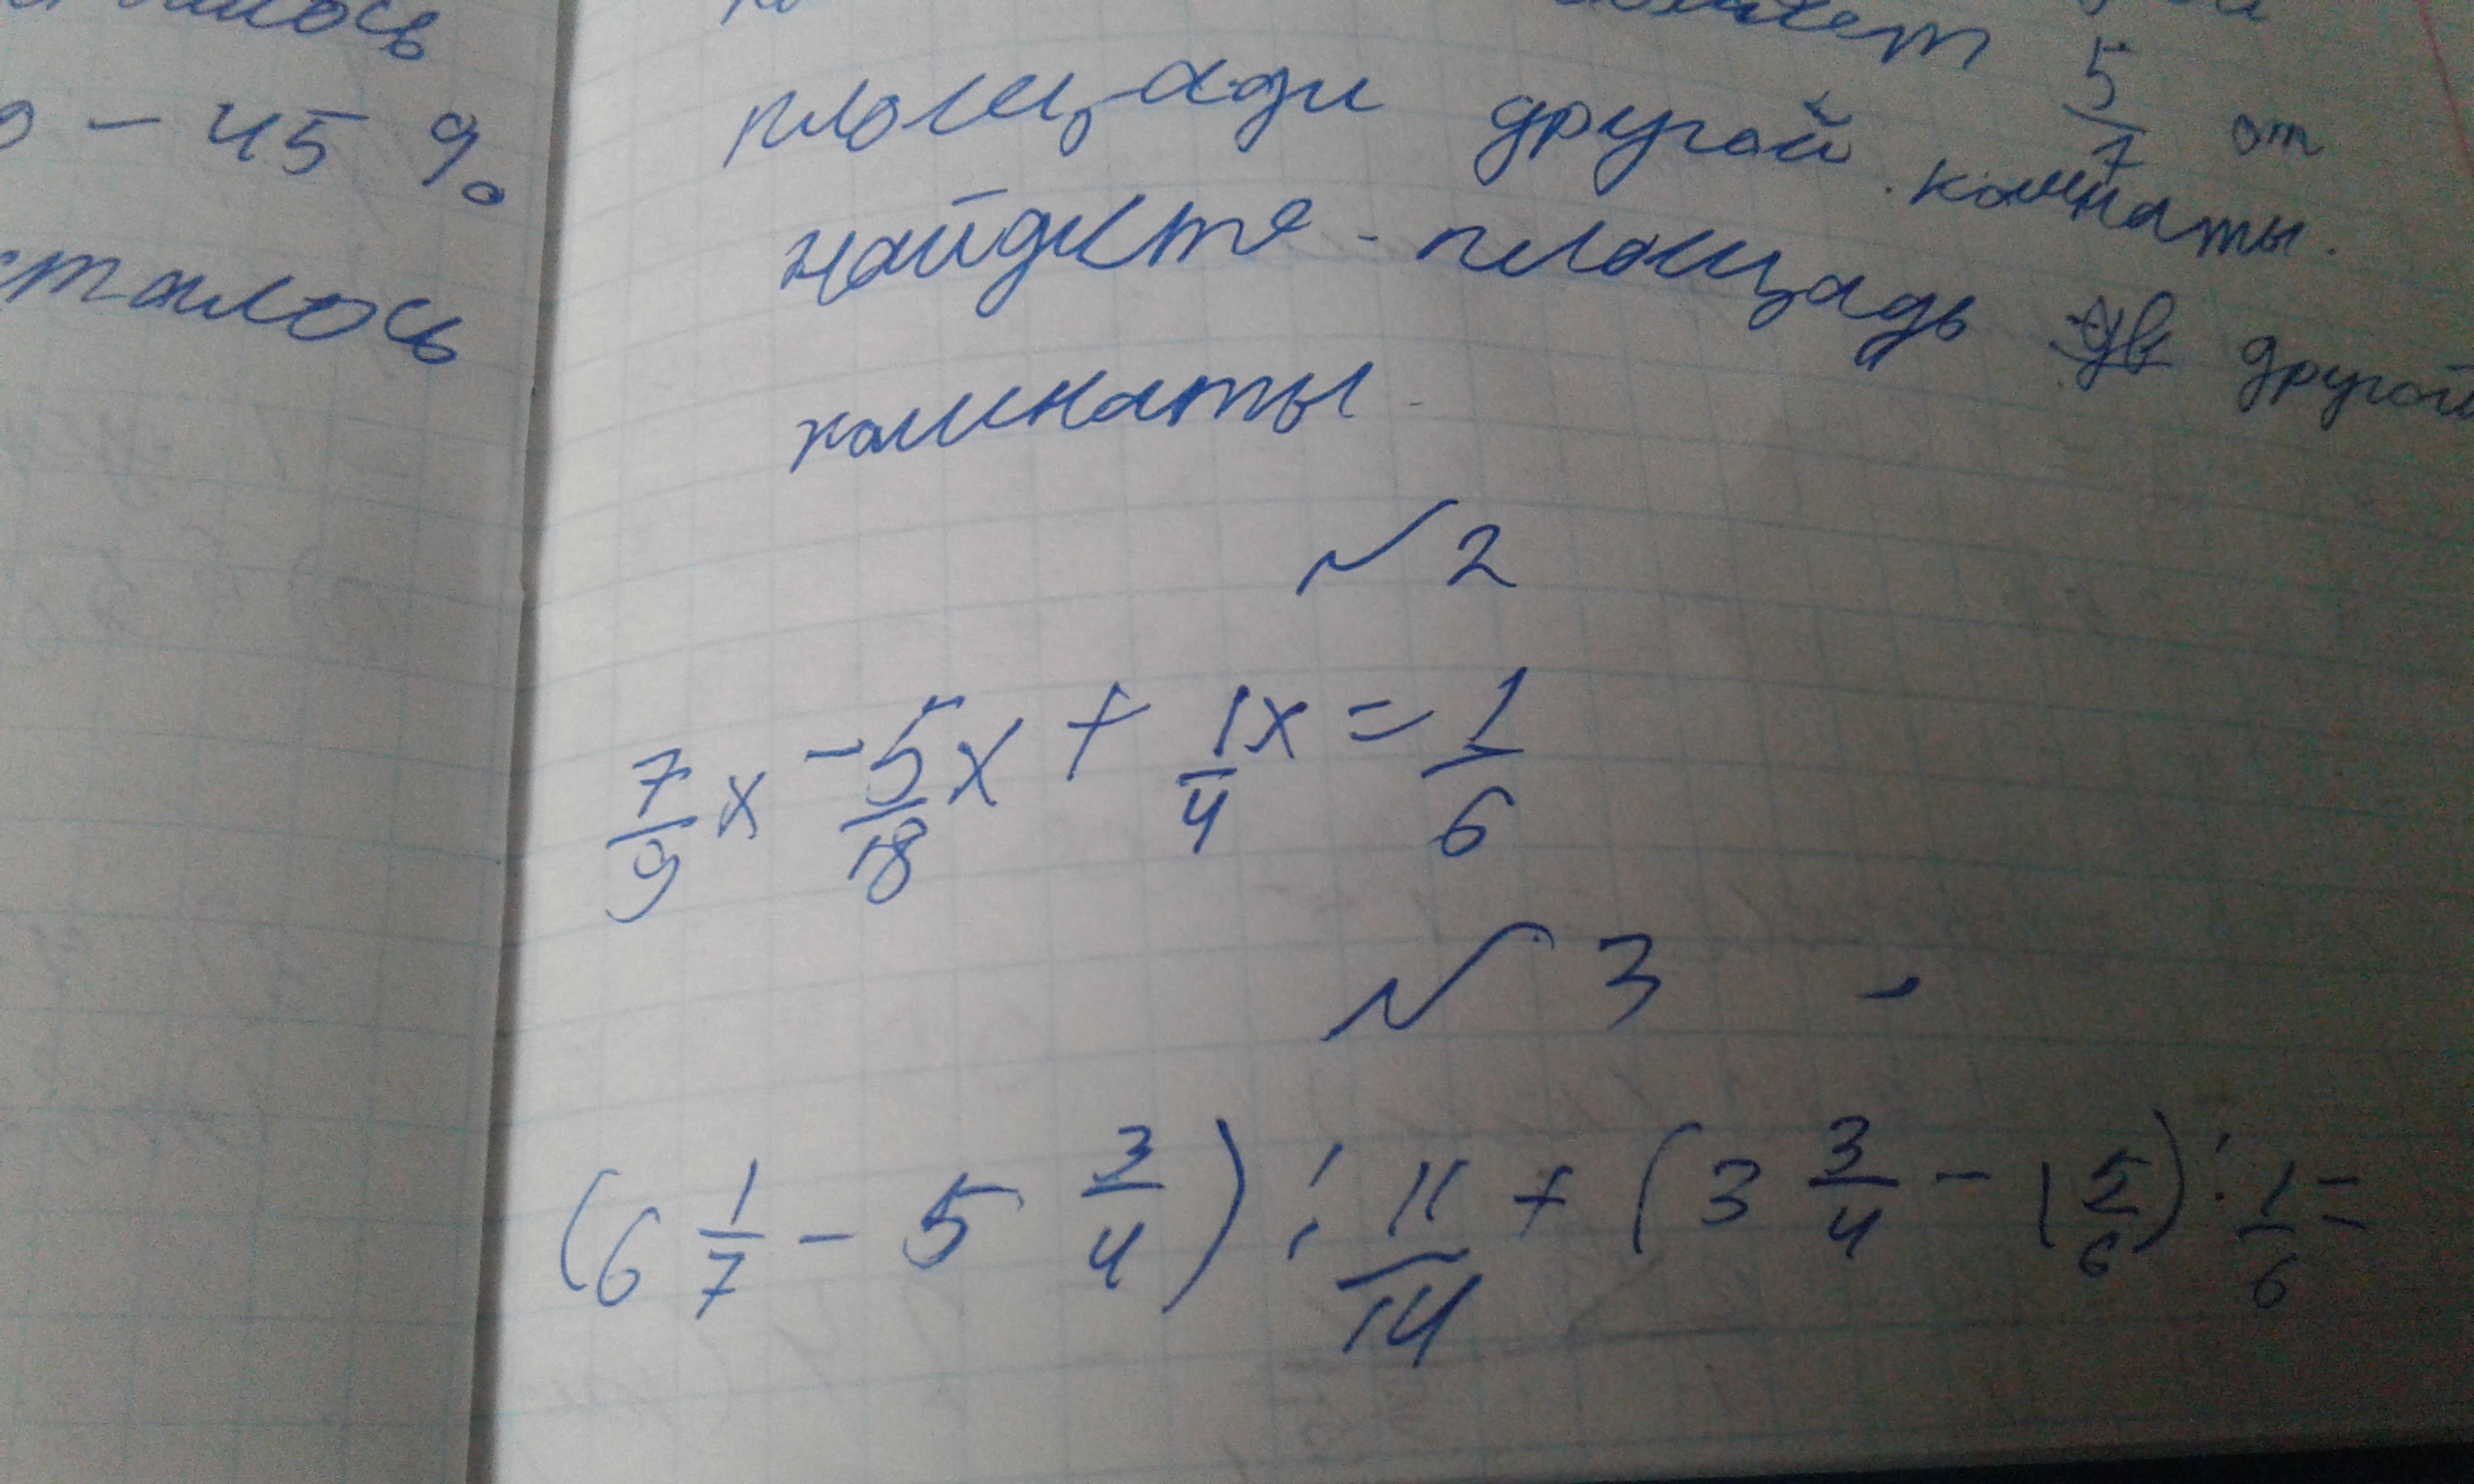 – 45 %
5/7 от
площади другой комнаты.
найдите площадь другой
комнаты.
№ 2
7/9 x - 5/18 x + 1/4 x = 1/6
№ 3
(6 1/7 - 5 3/4) : 11/14 + (3 3/4 - 1 5/6) : 1/6 =